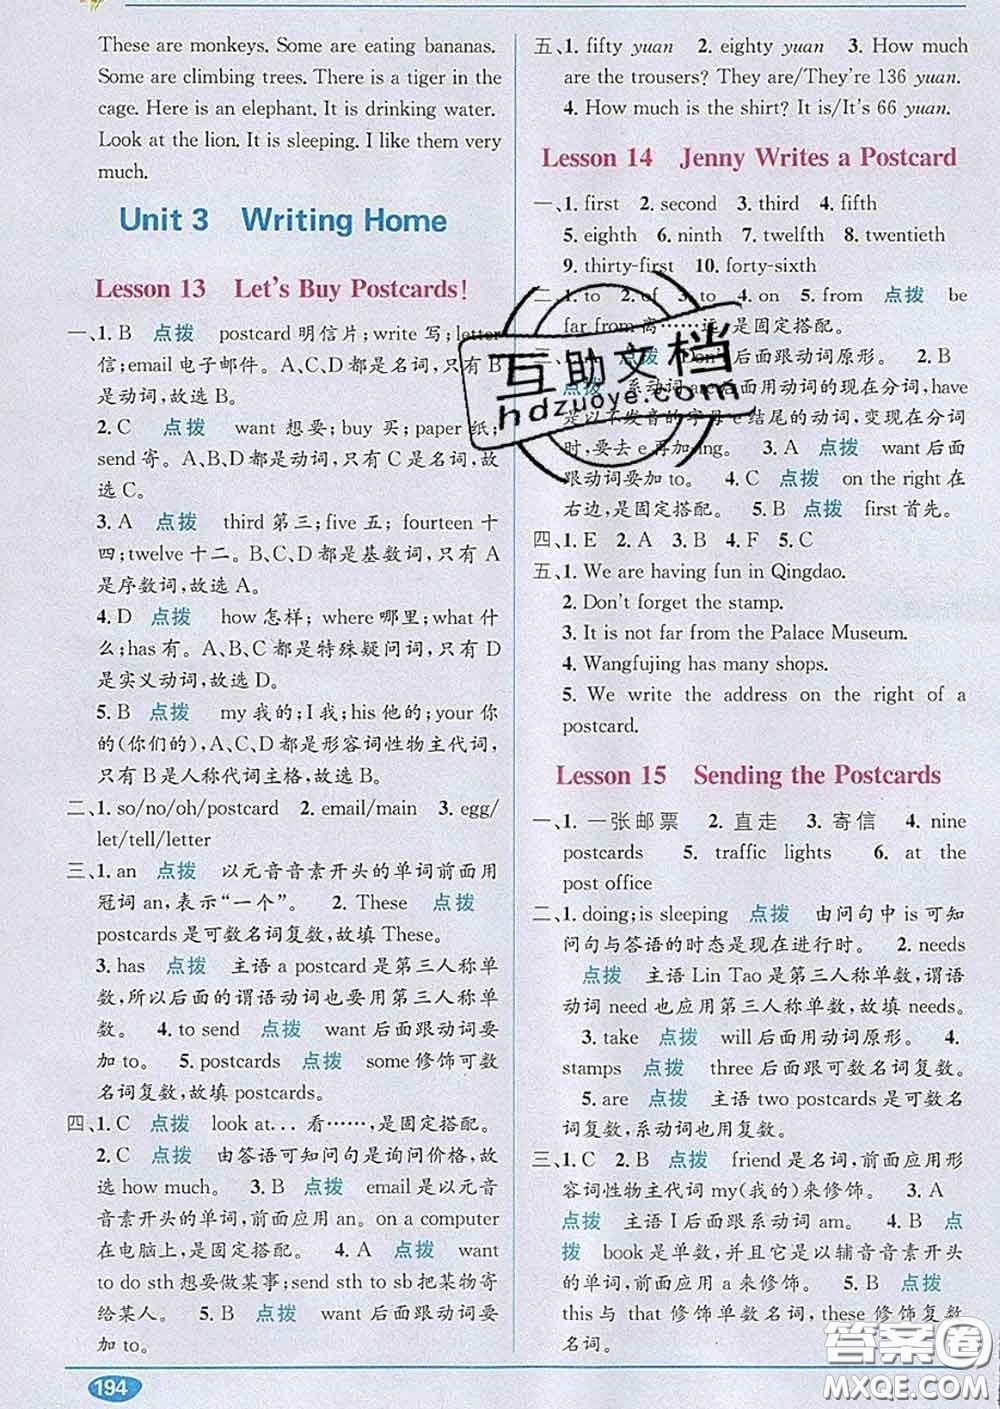 These are monkeys. Some are eating bananas.
Some are climbing trees. There is a tiger in the
cage. Here is an elephant. It is drinking water.
Look at the lion. It is sleeping. I like them very
much.
Unit 3 Writing Home
Lesson 13 Let's Buy Postcards!
一、1. B 点拨 postcard 明信片;write 写;letter
信;email 电子邮件。A、C、D 都是名词,只有 B
是动词,故选 B。
2. C 点拨 want 想要;buy 买;paper 纸;
send 寄。A、B、D 都是动词,只有 C 是名词,故
选 C。
3. A 点拨 third 第三;five 五; fourteen 十
四;twelve 十二。B、C、D 都是基数词,只有 A
是序数词,故选 A。
4. D 点拨 how 怎样; where 哪里;what 什
么;has 有。A、B、C 都是特殊疑问词,只有 D
是实义动词,故选 D。
5. B 点拨 my 我的;I 我;his 他的;your 你
的(你们的),A、C、D 都是形容词性物主代词,
只有 B 是人称代词主格,故选 B。
二、1. so/no/oh/postcard 2. email/main 3. egg/
let/tell/letter
三、1. an 点拨 以元音音素开头的单词前面用
冠词 an,表示“一个”。 2. These 点拨
postcards 是可数名词复数,故填 These。
3. has 点拨 主语 a postcard 是第三人称单
数,所以后面的谓语动词也要用第三人称单
数。 4. to send 点拨 want 后面跟动词要
加 to。 5. postcards 点拨 some 修饰可数
名词复数,故填 postcards。
四、1. C 点拨 look at... 看……,是固定搭配。
2. C 点拨 由答语可知问句是询问价格,故
选 how much。 3. B 点拨 email 是以元音
音素开头的单词,前面应用 an。on a computer
在电脑上,是固定搭配。 4. A 点拨 want
to do sth 想要做某事;send sth to sb 把某物寄
给某人。 5. B 点拨 want 后面跟动词要
加 to。
194
五、1. fifty yuan 2. eighty yuan 3. How much
are the trousers? They are/They're 136 yuan.
4. How much is the shirt? It is/It's 66 yuan.
Lesson 14 Jenny Writes a Postcard
一、1. first 2. second 3. third 4. fifth
5. eighth 6. ninth 7. twelfth 8. twentieth
9. thirty-first 10. forty-sixth
二、1. to 2. of 3. to 4. on 5. from 点拨 be
far from 离……远,是固定搭配。
点拨 Don't 后面跟动词原形。 2. B
点拨 系动词 are 后面用动词的现在分词,have
是以不发音的字母 e 结尾的动词,变现在分词
时,要去 e 再加 ing。 3. A 点拨 want 后面
跟动词要加 to。 4. C 点拨 on the right 在
右边,是固定搭配。 5. B 点拨 first 首先。
四、1. E 2. A 3. B 4. F 5. C
五、1. We are having fun in Qingdao.
2. Don't forget the stamp.
3. It is not far from the Palace Museum.
4. Wangfujing has many shops.
5. We write the address on the right of a
postcard.
Lesson 15 Sending the Postcards
一、1. 一张邮票 2. 直走 3. 寄信 4. nine
postcards 5. traffic lights 6. at the
post office
二、1. doing;is sleeping 点拨 由问句中 is 可知
问句与答语的时态是现在进行时。 2. needs
点拨 主语 Lin Tao 是第三人称单数,谓语
动词 need 也应用第三人称单数,故填 needs。
3. take 点拨 will 后面用动词原形。 4.
stamps 点拨 three 后面跟可数名词复数。
5. are 点拨 主语 two postcards 是可数名
词复数,系动词也用复数。
三、1. C 2. B 点拨 friend 是名词,前面应用形
容词性物主代词 my(我的)来修饰。 3. A
点拨 主语 I 后面跟系动词 am。 4. B 点
拨 book 是单数,并且它是以辅音音素开头
的单词,前面应用 a 来修饰。 5. B 点拨
this 与 that 修饰单数名词,these 修饰复数
名词。
互助文档
hdzuoye.com
答案圈
MXQE.COM